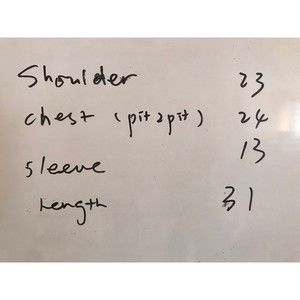 Shoulder 23
chest (pit2pit) 24
sleeve 13
Length 31